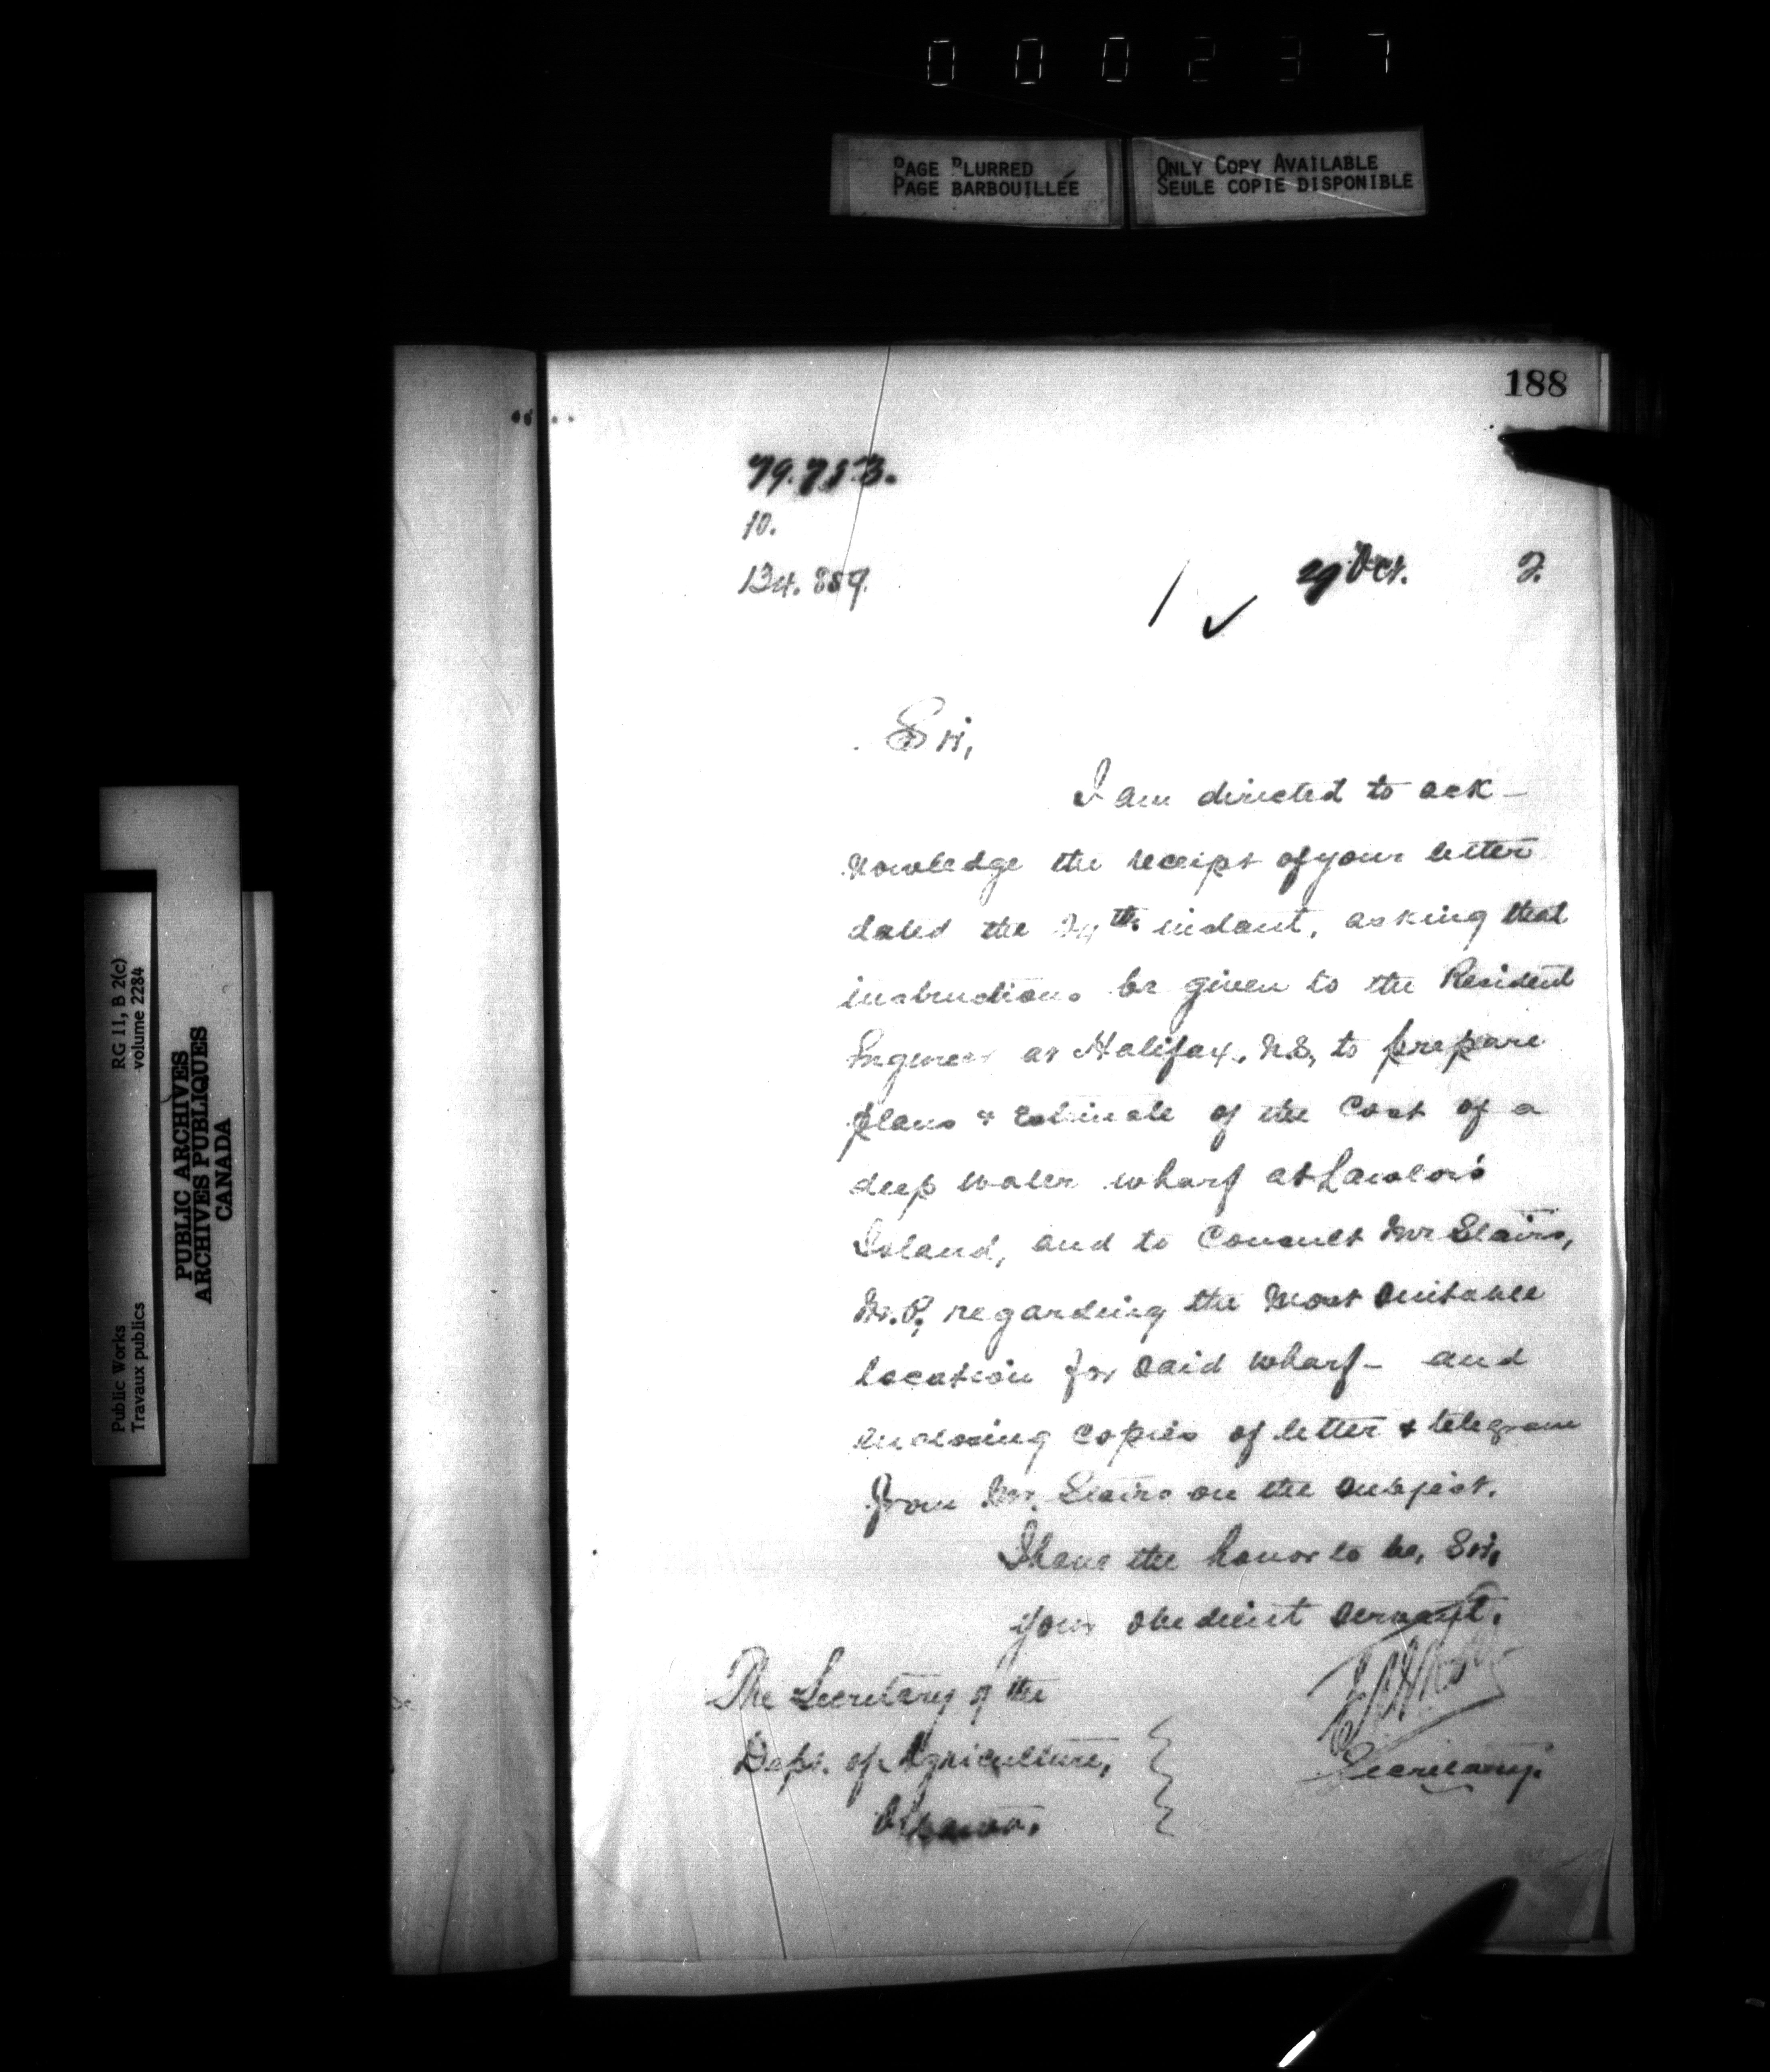 000237
PAGE BLURRED
PAGE BARBOUILLÉE
ONLY COPY AVAILABLE
SEULE COPIE DISPONIBLE
188
79.753.
10.
134.889.
29 Oct. 2.
Sir,
I am directed to ack-
nowledge the receipt of your letter
dated the 24th instant, asking that
instructions be given to the Resident
Engineer at Halifax, N.S, to prepare
plans & Estimate of the Cost of a
deep water wharf at Lawlor's
Island, and to Consult Mr Stairs,
M.P, regarding the most suitable
location for said wharf - and
enclosing copies of letter & telegram
from Mr. Stairs on the subject.
I have the honor to be, Sir,
Your obedient servant.
Secretary.
The Secretary of the
Dept. of Agriculture,
Ottawa.
Public Works
Travaux publics
RG 11, B 2(c)
volume 2284
PUBLIC ARCHIVES
ARCHIVES PUBLIQUES
CANADA